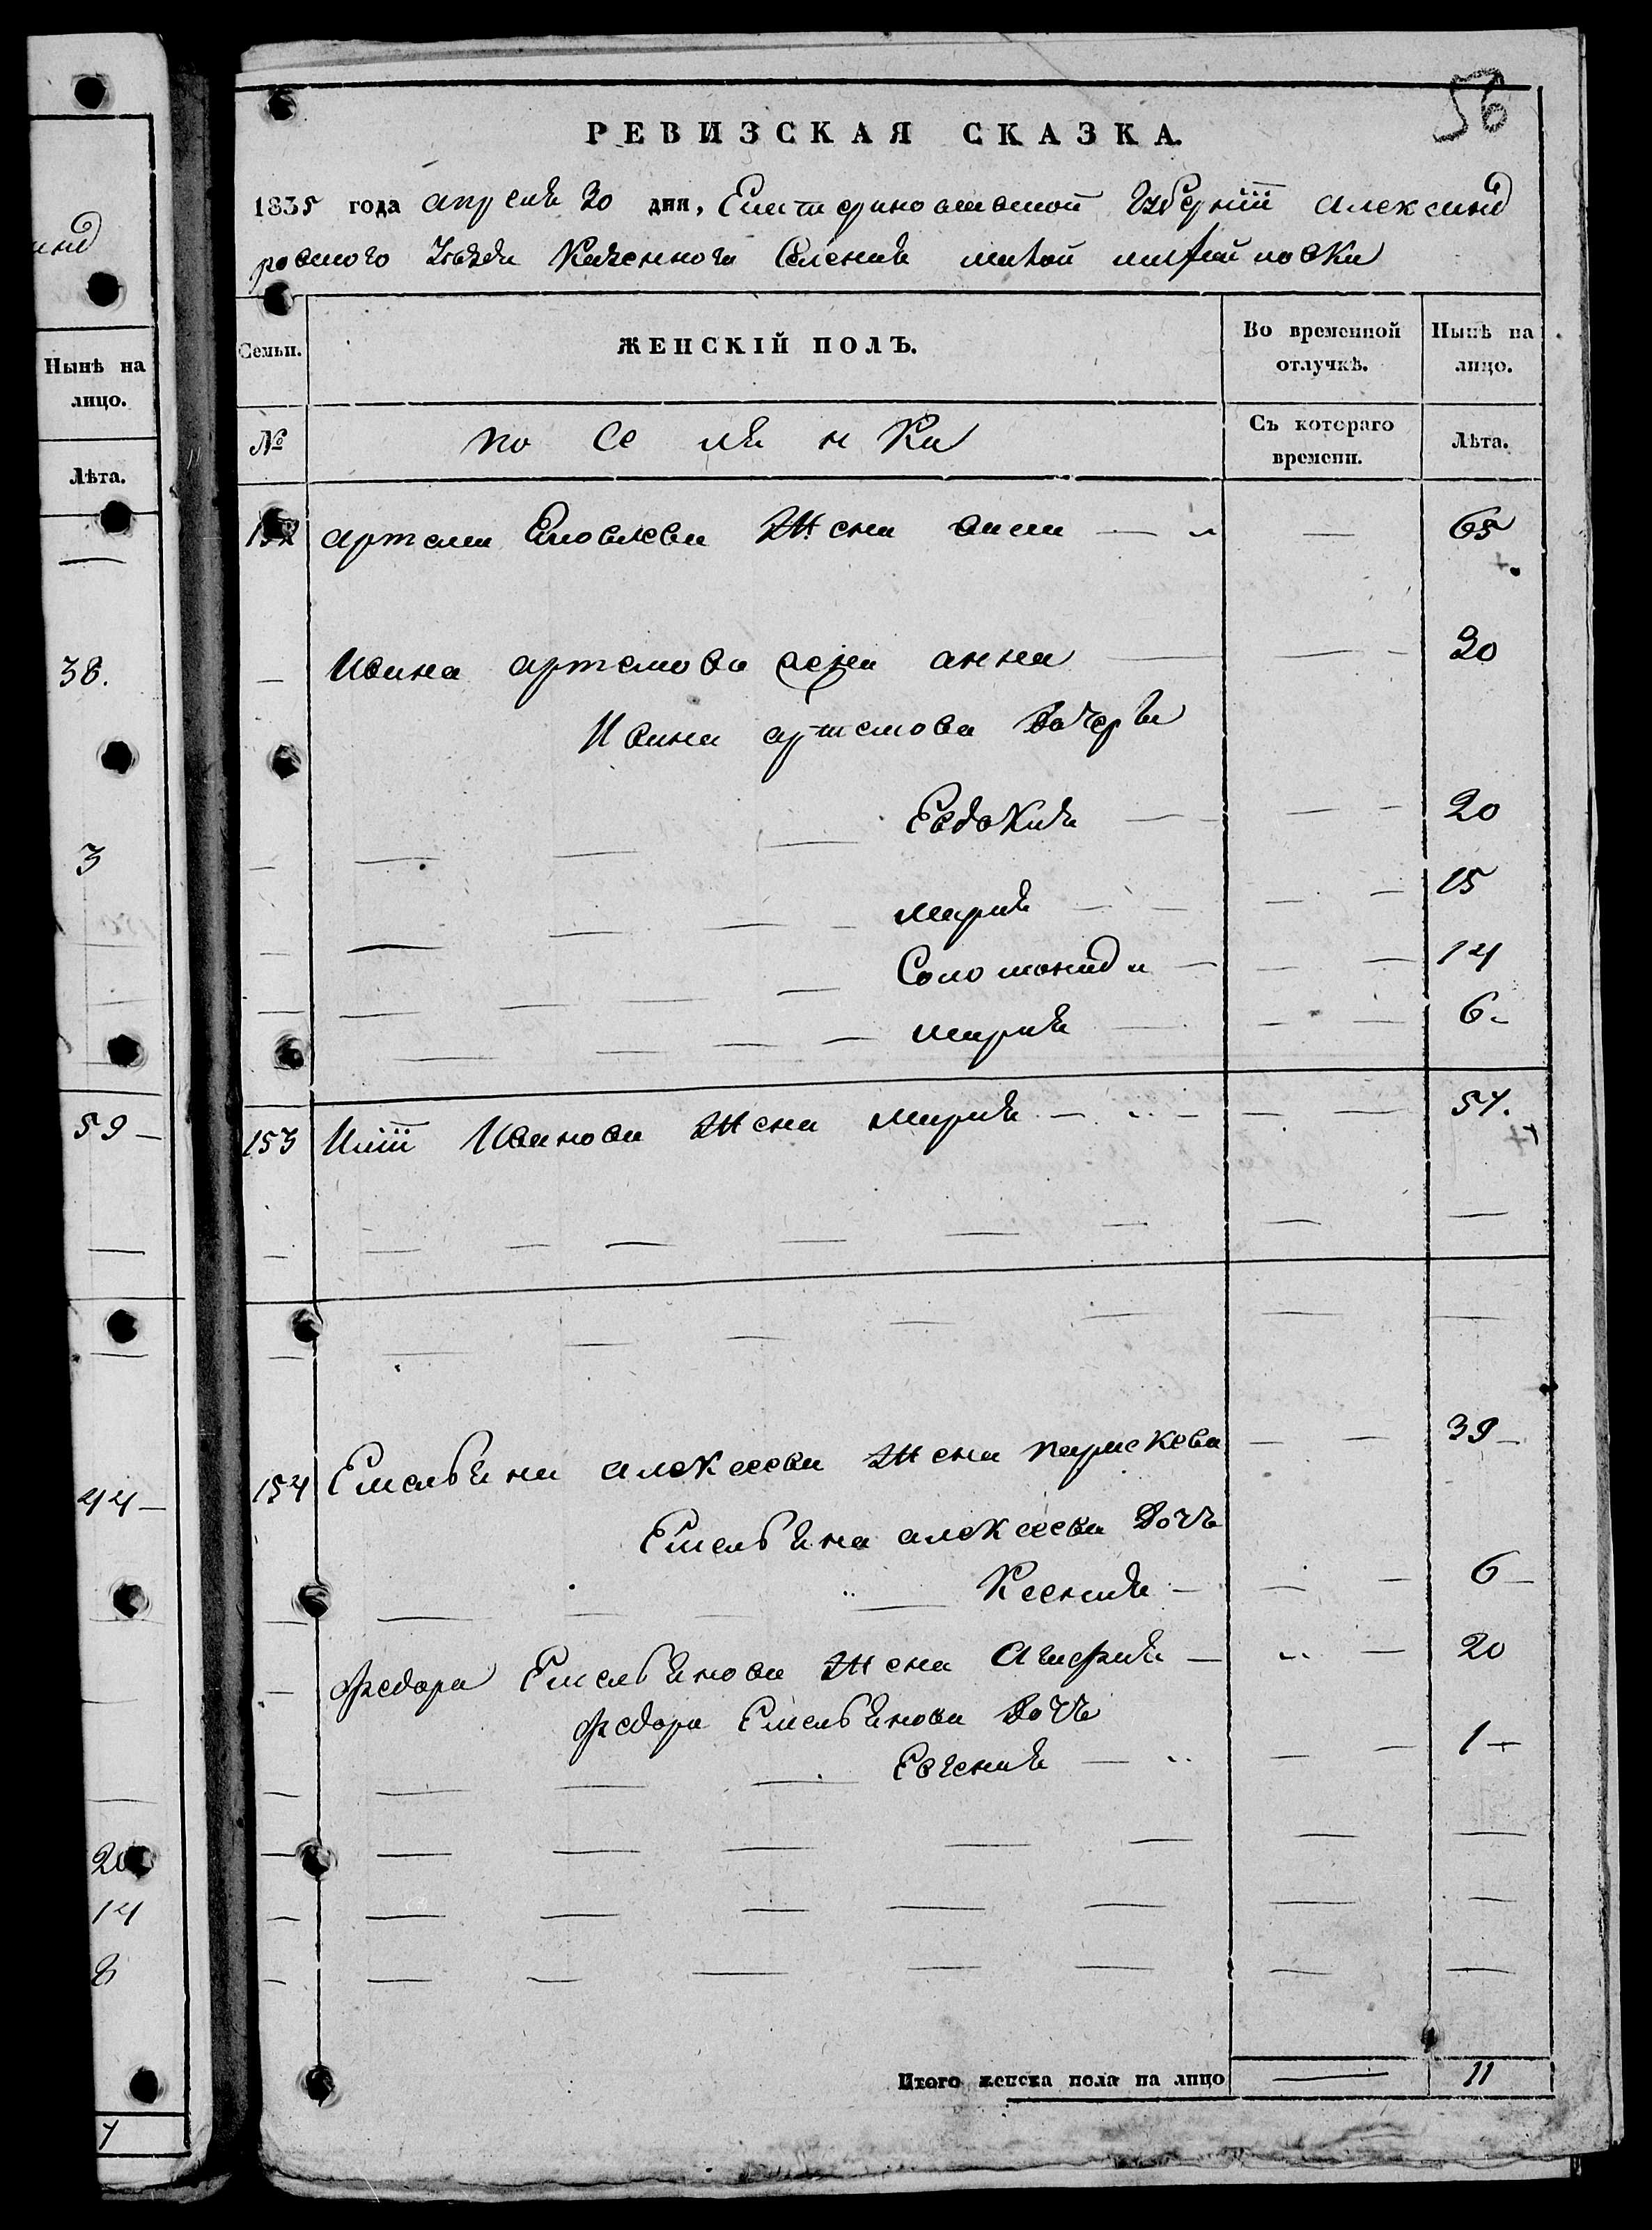 56
РЕВИЗСКАЯ СКАЗКА.
1835 года апреля 30 дня, Екатериносławской Губернiи Александ
ровского Уезда Казенного Селения малой михайловки
Семьи.
ЖЕНСКIЙ ПОЛЪ.
Во временной отлучкѣ.
Нынѣ на лицо.
№
поселянки
Съ котораго времени.
Лѣта.
152 артема Яковлева Жена 65
Ивана артемова жена анна 30
Ивана артемова дочери
Евдокия 20
мария 15
Соломонида 14
мария 6
153 Илiи Иванова Жена мария 54.
154 Емельяна алексеева Жена параскева 39
Емельяна алексеева дочь
Ксения 6
федора Емельянова Жена Агафия 20
федора Емельянова дочь
Евгения 1
Итого женска пола на лицо 11
анд
Нынѣ на лицо.
Лѣта.
38.
3
59
44
20
14
8
7